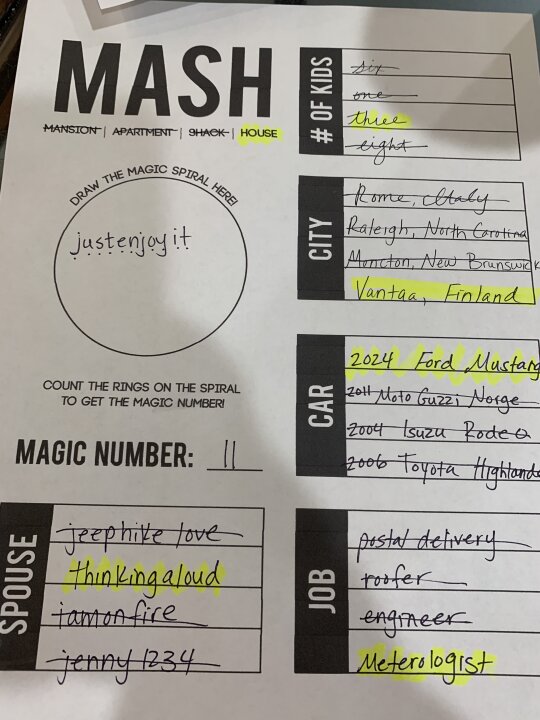 MASH
MANSION | APARTMENT | SHACK | HOUSE
DRAW THE MAGIC SPIRAL HERE!
justenjoyit
COUNT THE RINGS ON THE SPIRAL
TO GET THE MAGIC NUMBER!
MAGIC NUMBER: 11
# OF KIDS
six
one
three
eight
CITY
Rome, Italy
Raleigh, North Carolina
Moncton, New Brunswick
Vantaa, Finland
CAR
2024 Ford Mustang
2011 Moto Guzzi Norge
2004 Isuzu Rodeo
2006 Toyota Highlande
SPOUSE
jeephike love
thinkingaloud
iamonfire
jenny 1234
JOB
postal delivery
roofer
engineer
Meterologist